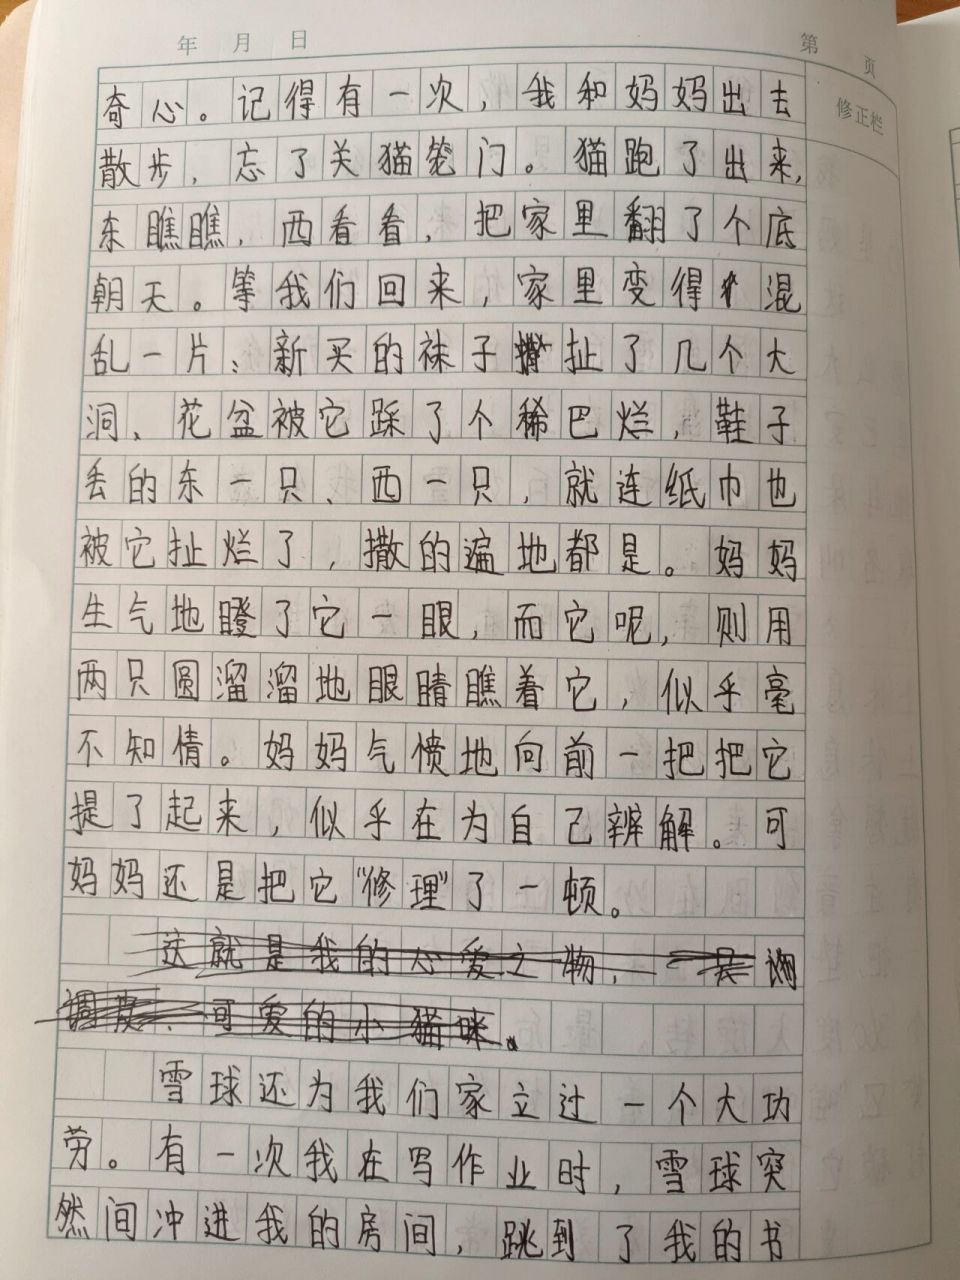 年 月 日 第 页
修正栏
奇心。记得有一次，我和妈妈出去
散步，忘了关猫笼门。猫跑了出来，
东瞧瞧，西看看，把家里翻了个底
朝天。等我们回来，家里变得混
乱一片：新买的袜子扯了几个大
洞、花盆被它踩了个稀巴烂，鞋子
丢的东一只、西一只，就连纸巾也
被它扯烂了，撒的遍地都是。妈妈
生气地瞪了它一眼，而它呢，则用
两只圆溜溜地眼睛瞧着它，似乎毫
不知情。妈妈气愤地向前一把把它
提了起来，似乎在为自己辨解。可
妈妈还是把它“修理”了一顿。
这就是我的心爱之物，一只
调皮、可爱的小猫咪。
雪球还为我们家立过一个大功
劳。有一次我在写作业时，雪球突
然间冲进我的房间，跳到了我的书